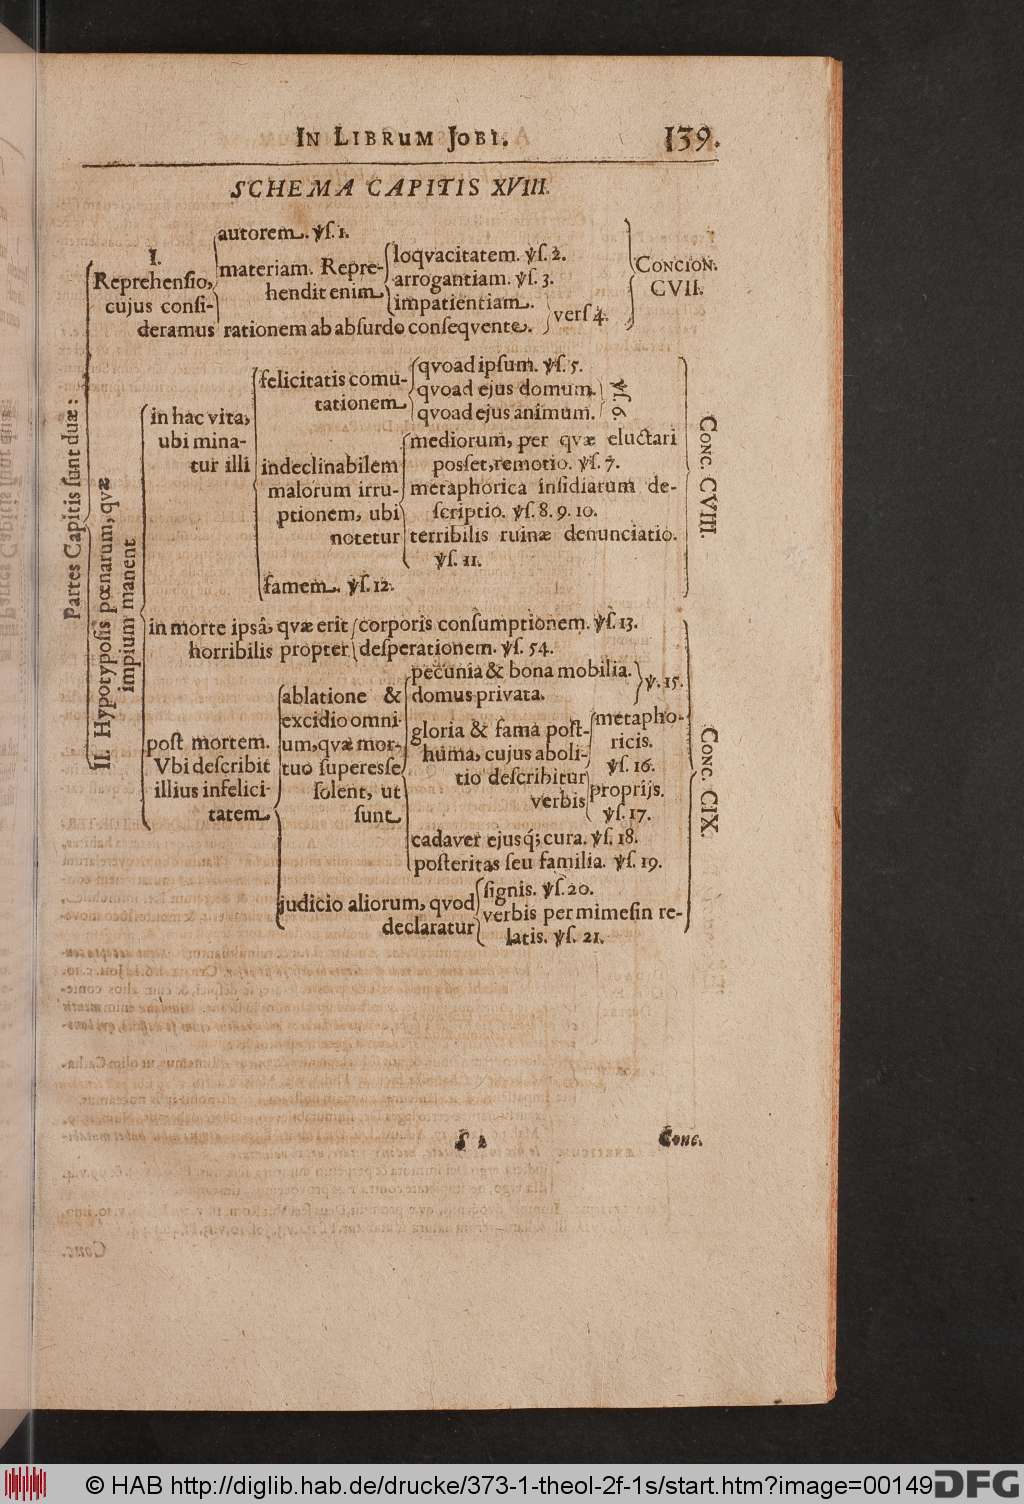 IN LIBRUM JOBI. 139.
SCHEMA CAPITIS XVIII.
Partes Capitis sunt duæ:
I.
Reprehensio,
cujus consi-
deramus
autorem. ỳs. 1.
materiam. Repre-
hendit enim
loqvacitatem. ỳs. 2.
arrogantiam. ỳs. 3.
impatientiam.
rationem ab absurdo conseqvente.
vers 4.
CONCION.
CVII.
II. Hypotyposis pœnarum, qvæ
impium manent
in hac vita,
ubi mina-
tur illi
felicitatis comu-
tationem
qvoad ipsum. ỳs. 5.
qvoad ejus domum.
qvoad ejus animum.
ỳs. 6
indeclinabilem
malorum irru-
ptionem, ubi
notetur
mediorum, per qvæ eluctari
posset, remotio. ỳs. 7.
metaphorica insidiarum de-
scriptio. ỳs. 8. 9. 10.
terribilis ruinæ denunciatio.
ỳs. 11.
famem. ỳs. 12.
CONC. CVIII.
in morte ipsâ, qvæ erit
horribilis propter
corporis consumptionem. ỳs. 13.
desperationem. ỳs. 54.
post mortem.
Vbi describit
illius infelici-
tatem
ablatione &
excidio omni-
um, qvæ mor-
tuo superesse
solent, ut
sunt
pecunia & bona mobilia.
domus privata.
ỳ. 15.
gloria & fama post-
huma, cujus aboli-
tio describitur
verbis
metapho-
ricis.
ỳs. 16.
proprijs.
ỳs. 17.
cadaver ejusq́; cura. ỳs. 18.
posteritas seu familia. ỳs. 19.
judicio aliorum, qvod
declaratur
signis. ỳs. 20.
verbis per mimesin re-
latis. ỳs. 21.
CONC. CIX.
S 2 Conc.
© HAB http://diglib.hab.de/drucke/373-1-theol-2f-1s/start.htm?image=00149
DFG